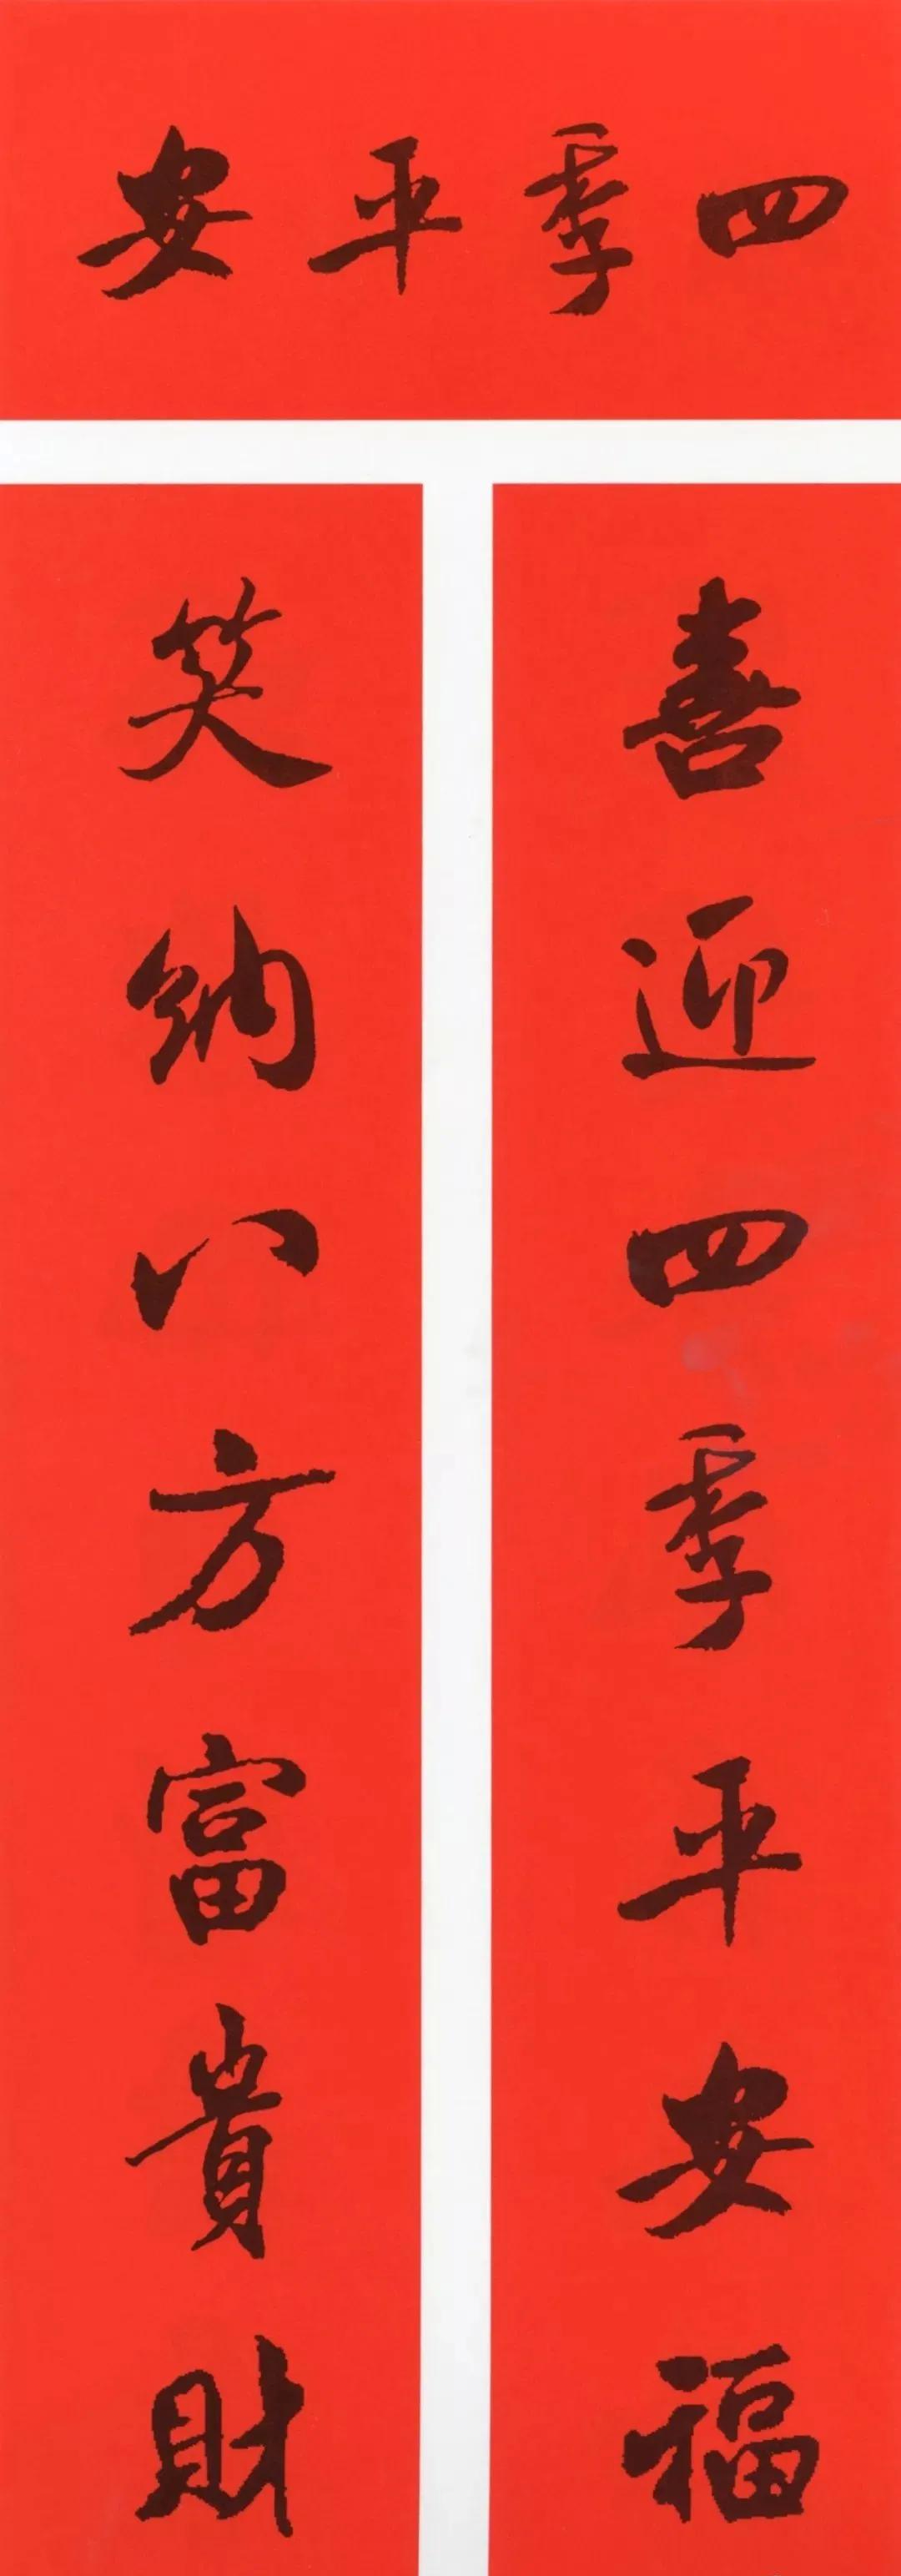 四季平安
喜迎四季平安福
笑納八方富貴財